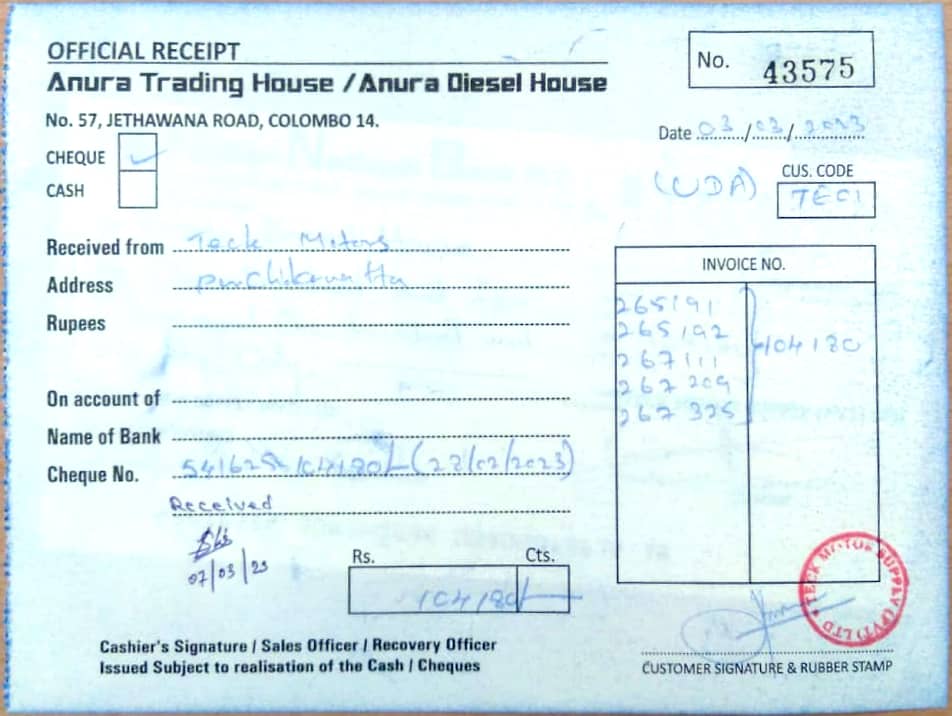 OFFICIAL RECEIPT
Anura Trading House / Anura Diesel House
No. 43575
No. 57, JETHAWANA ROAD, COLOMBO 14.
Date 03/03/2023
CHEQUE ✓
CASH
(UDA)
CUS. CODE
TE01
Received from Teck Motors
Address
Rupees
On account of
Name of Bank
Cheque No. 104180/- (28/02/2023)
Received
07/03/23
INVOICE NO.
265191
265192
267111
267209
267325
104180
Rs. Cts.
104180/-
TECK MOTOR SUPPLY (PVT) LTD
Cashier's Signature / Sales Officer / Recovery Officer
Issued Subject to realisation of the Cash / Cheques
CUSTOMER SIGNATURE & RUBBER STAMP